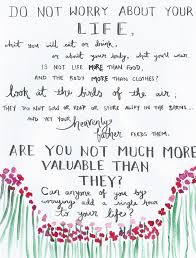 DO NOT WORRY ABOUT YOUR
LIFE,
what you will eat or drink,
or about your body, what you'll wear.
IS NOT LIFE MORE THAN FOOD,
AND THE BODY MORE THAN CLOTHES?
look at the birds of the air;
THEY DO NOT SOW OR REAP OR STORE AWAY IN THE BARNS...
AND YET YOUR heavenly
father FEEDS THEM.
ARE YOU NOT MUCH MORE
VALUABLE THAN
THEY?
Can anyone of you by
worrying add a single hour
to your life?